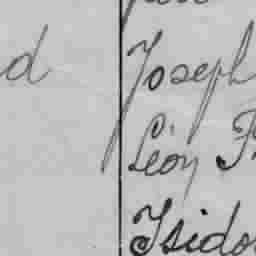 d Joseph
Léon
Isido